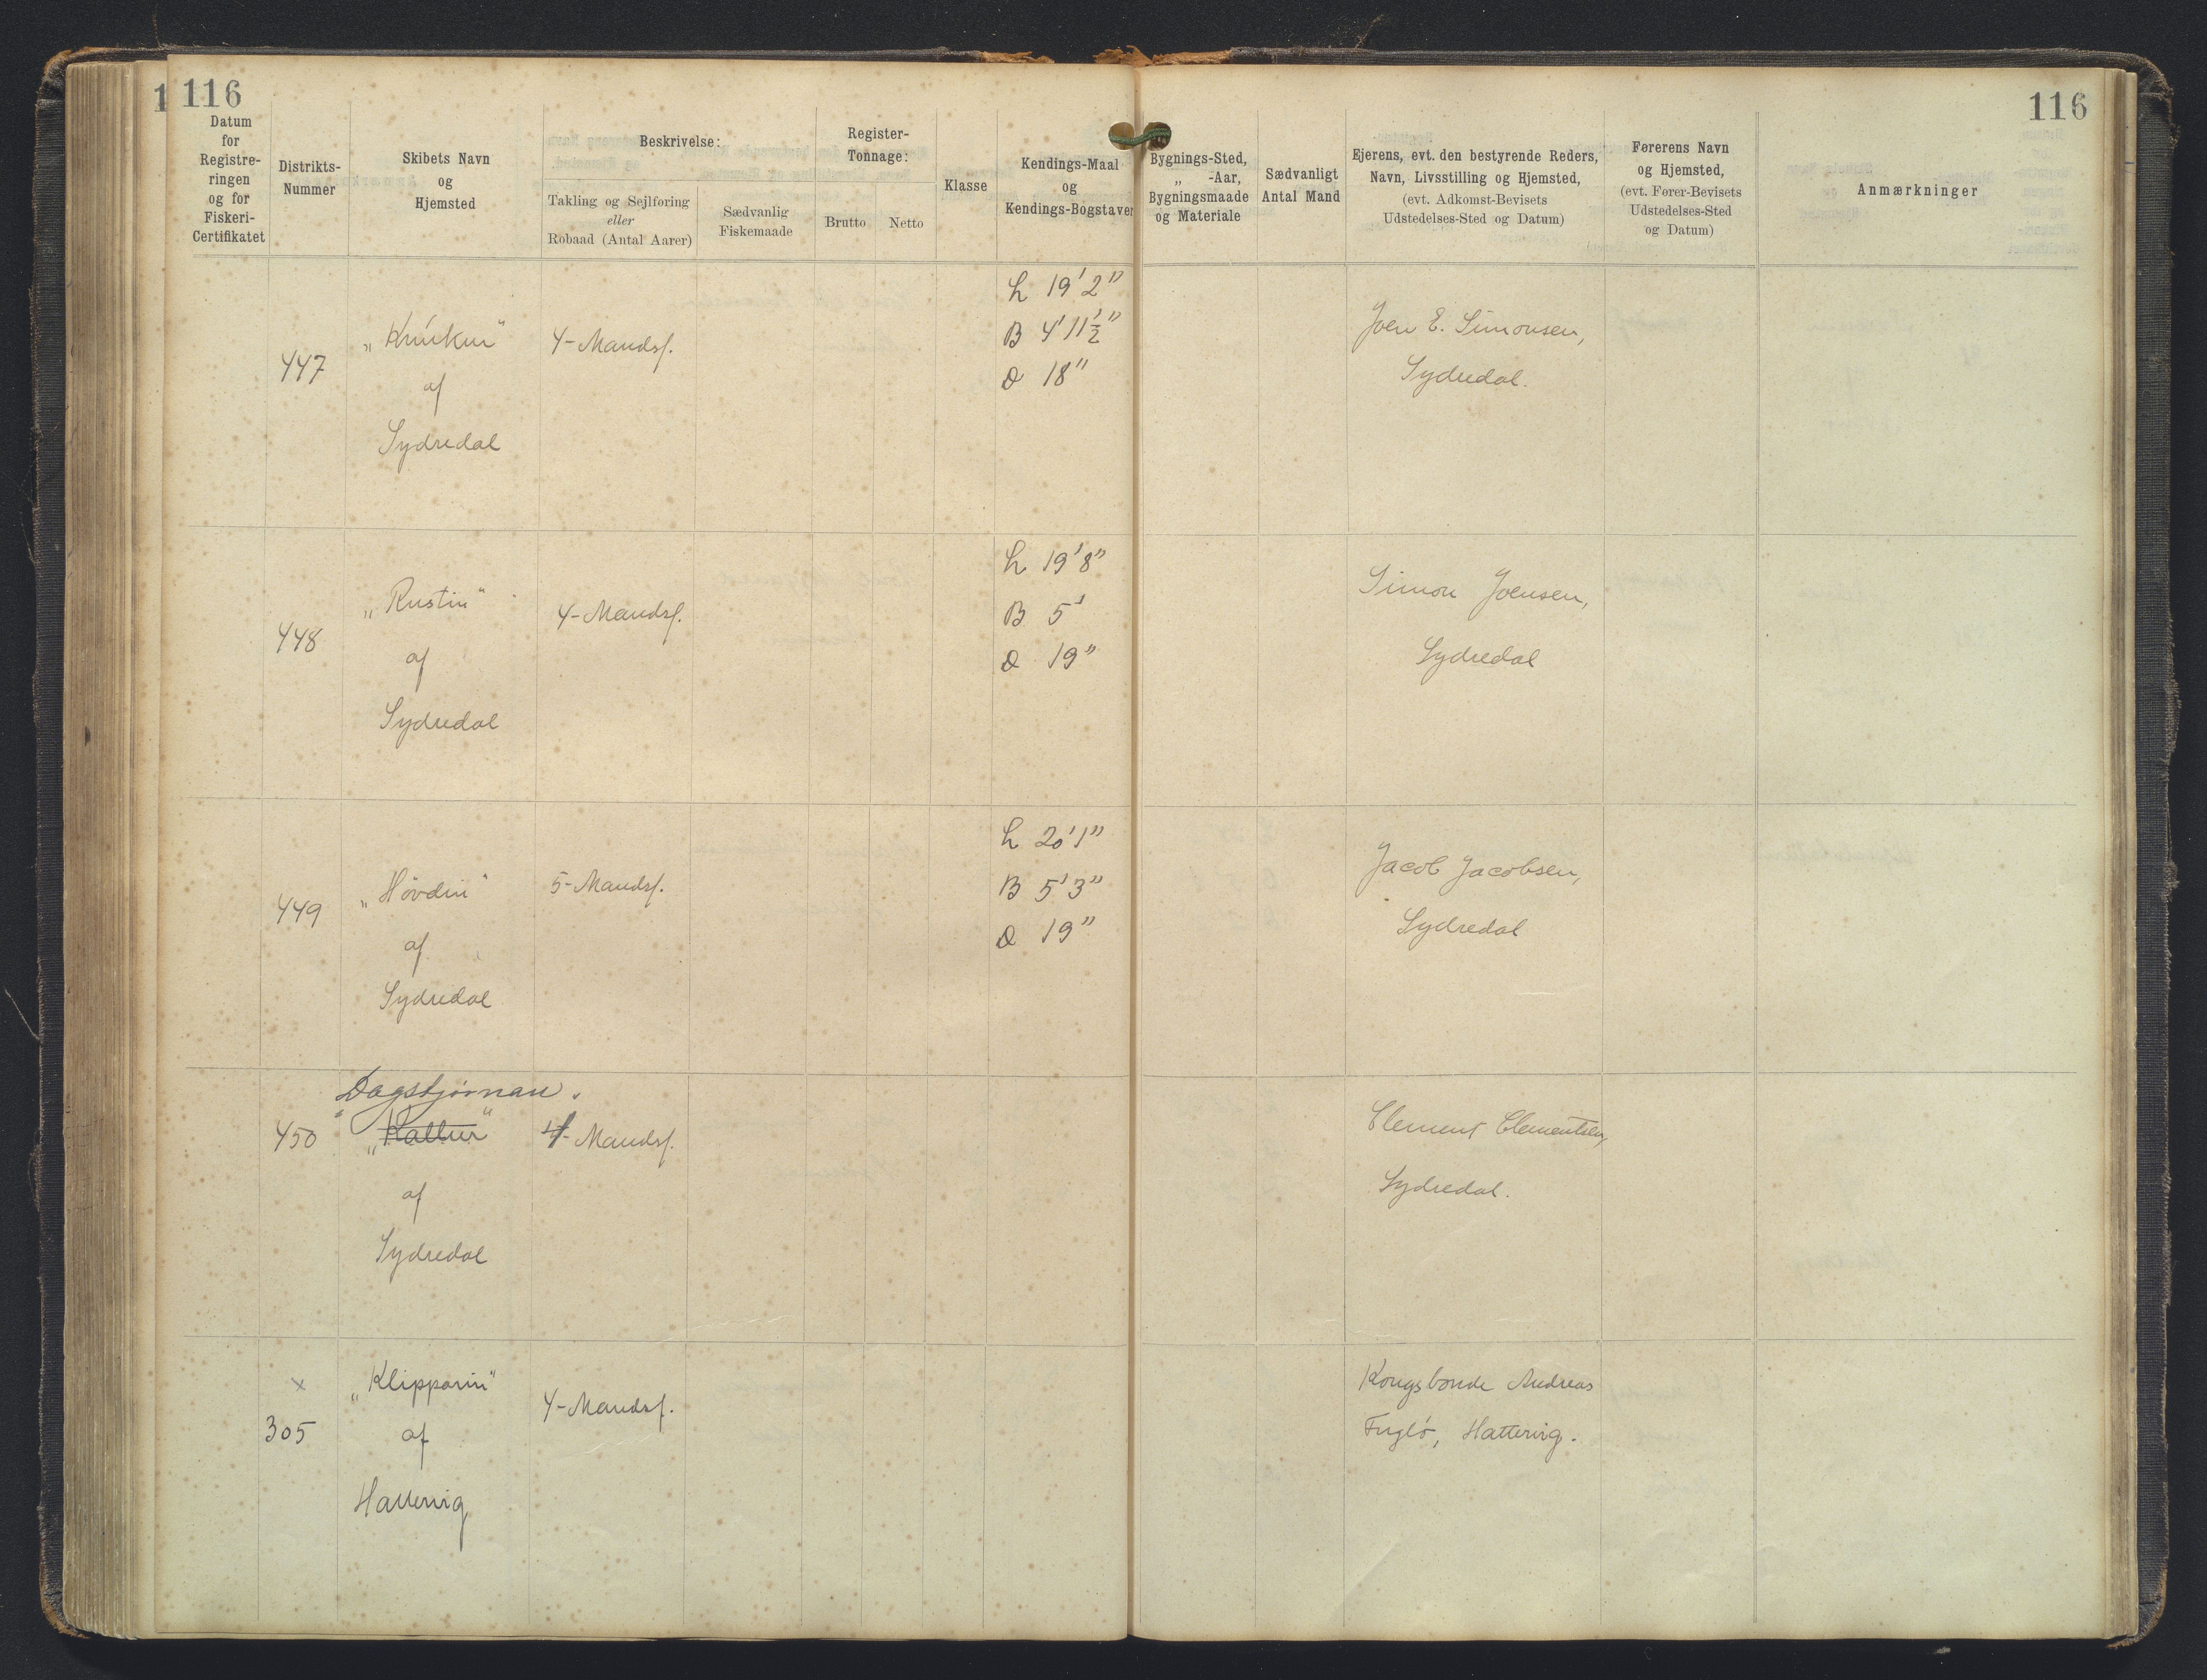 116
116
Datum
for
Registre-
ringen
og for
Fiskeri-
Certifikatet
Distrikts-
Nummer
Skibets Navn
og
Hjemsted
Beskrivelse:
Takling og Sejlføring
eller
Robaad (Antal Aarer)
Sædvanlig
Fiskemaade
Register-
Tonnage:
Brutto
Netto
Klasse
Kendings-Maal
og
Kendings-Bogstaver
Bygnings-Sted,
„ -Aar,
Bygningsmaade
og Materiale
Sædvanligt
Antal Mand
Ejerens, evt. den bestyrende Reders,
Navn, Livsstilling og Hjemsted,
(evt. Adkomst-Bevisets
Udstedelses-Sted og Datum)
Førerens Navn
og Hjemsted,
(evt. Fører-Bevisets
Udstedelses-Sted
og Datum)
Anmærkninger
447
af
Sydredal
4-Mandsf.
L 19' 2"
B 4' 11 1/2"
D 18"
Joen E. Simonsen,
Sydredal.
448
„Rustin"
af
Sydredal
4-Mandsf.
L 19' 8"
B 5'
D 19"
Simon Joensen,
Sydredal
449
„Hövdin"
af
Sydredal
5-Mandsf.
L 20' 1"
B 5' 3"
D 19"
Jacob Jacobsen,
Sydredal
450
Dagstjørnan.
af
Sydredal
4-Mandsf.
Clement Clementsen,
Sydredal.
x
305
„Klipparin"
af
Hattervig
4-Mandsf.
Kongsbonde Andreas
Fuglö, Hattervig.